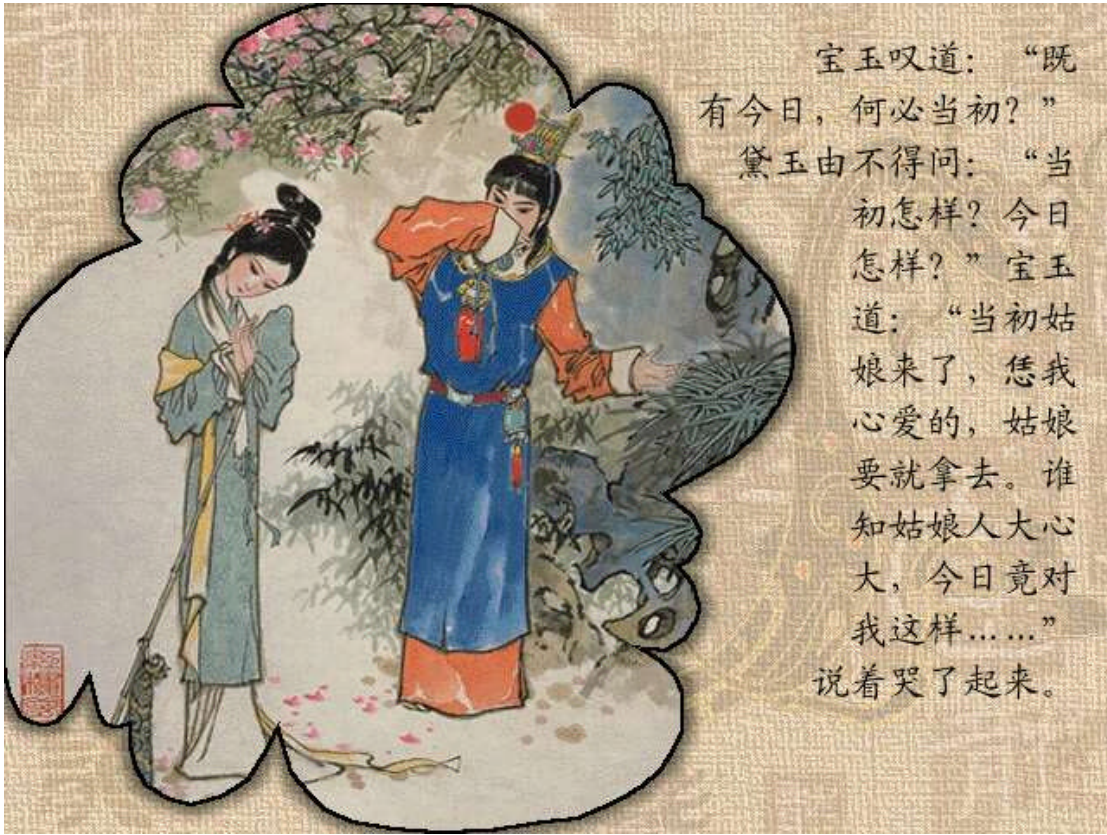 宝玉叹道： “既
有今日，何必当初？”
黛玉由不得问： “当
初怎样？今日
怎样？”宝玉
道： “当初姑
娘来了，恁我
心爱的，姑娘
要就拿去。谁
知姑娘人大心
大，今日竟对
我这样……”
说着哭了起来。